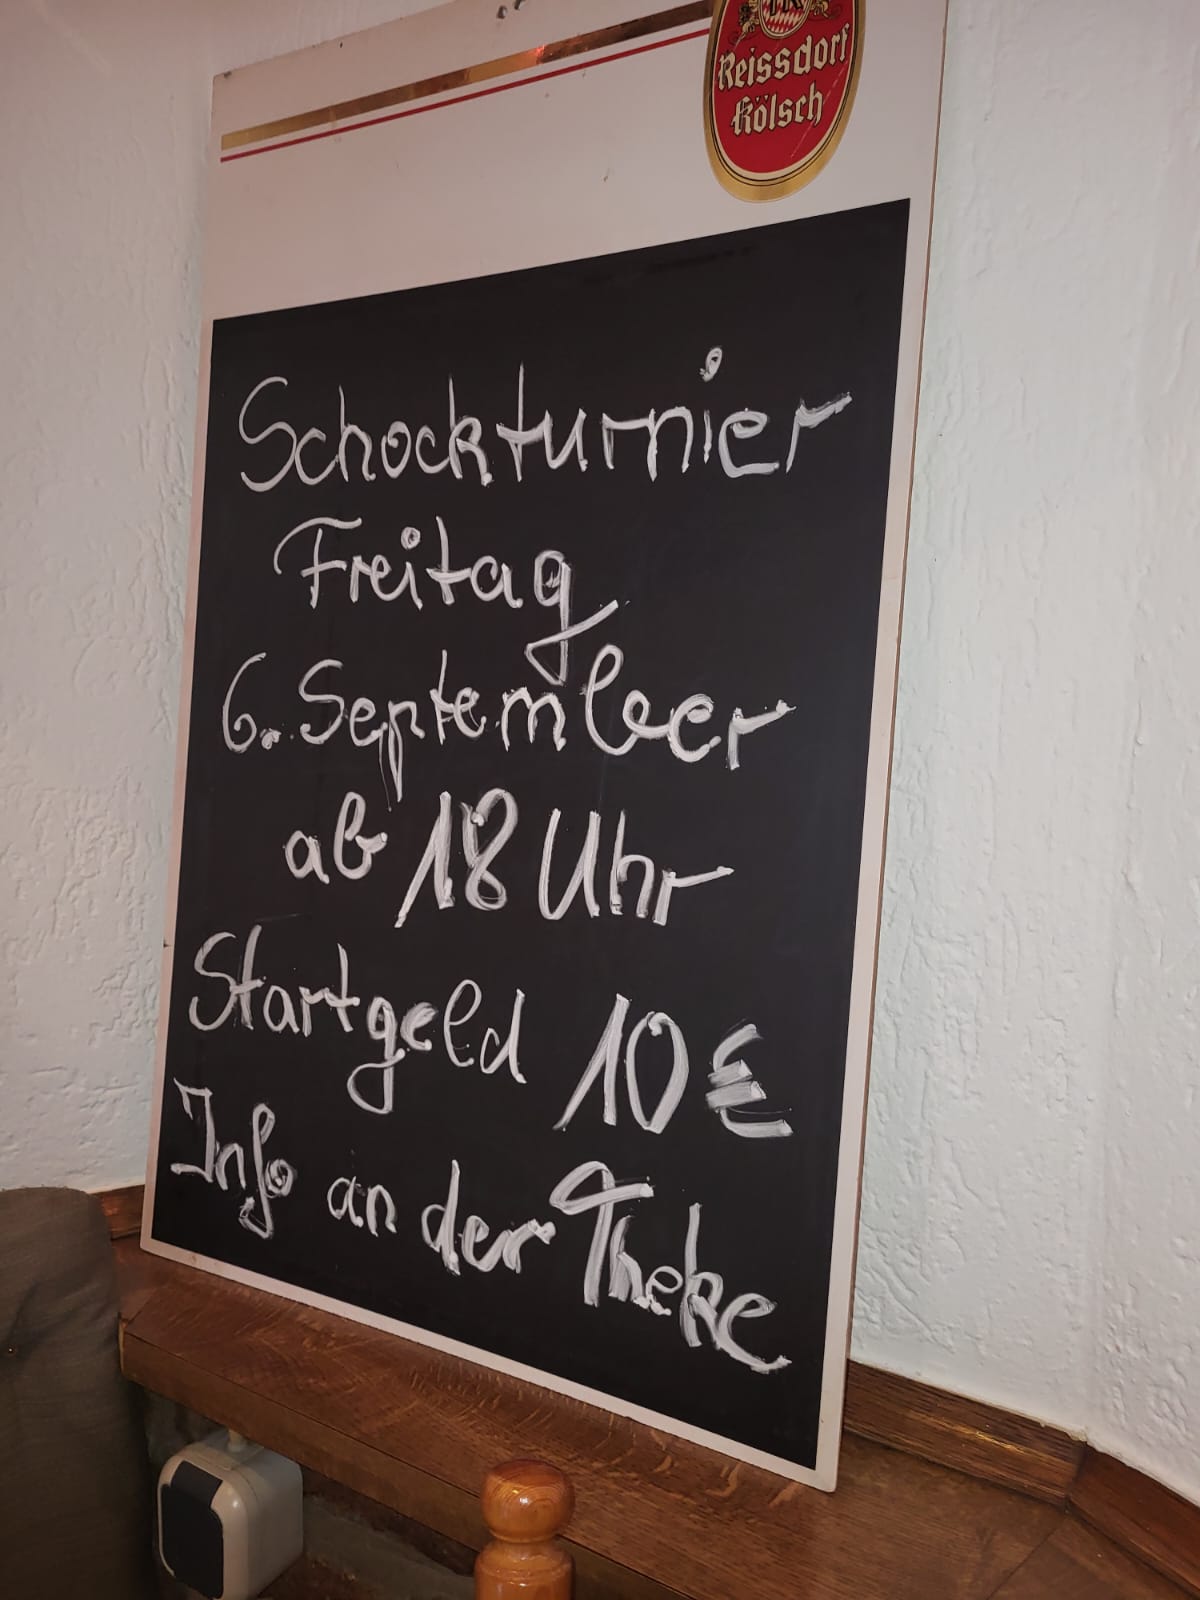 Reissdorf
Kölsch
Schockturnier
Freitag
6. September
ab 18 Uhr
Startgeld 10 €
Info an der Theke